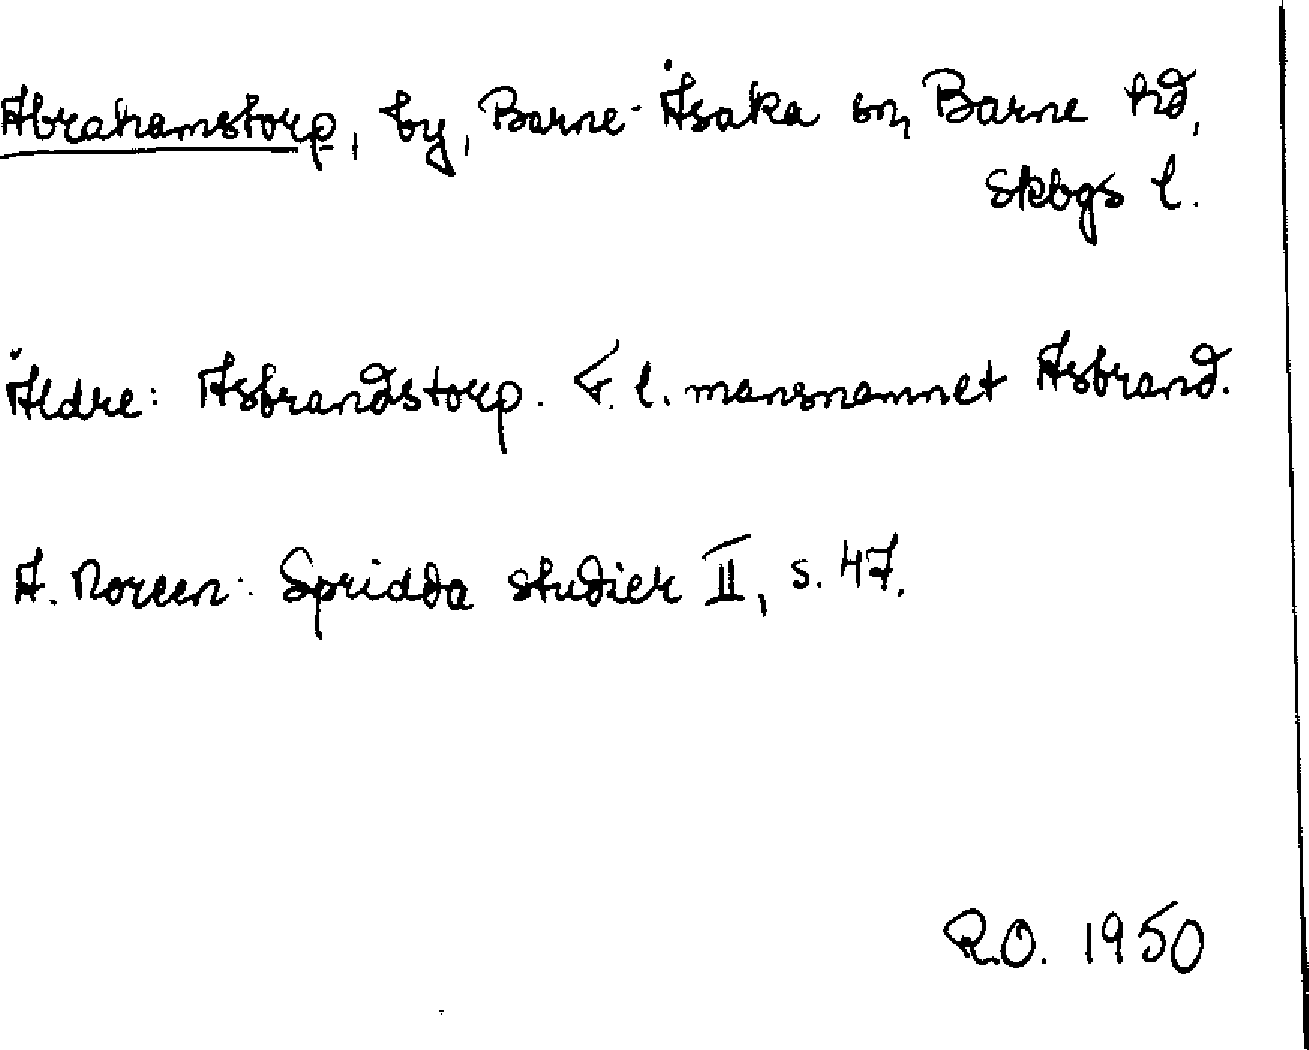 Abrahamstorp, by, Barne-Åsaka sn, Barne hd,
Skbgs l.
Äldre: Asbrandstorp. F. l. mansnamnet Asbrand.
A. Noreen: Spridda studier II, s. 47.
R.O. 1950